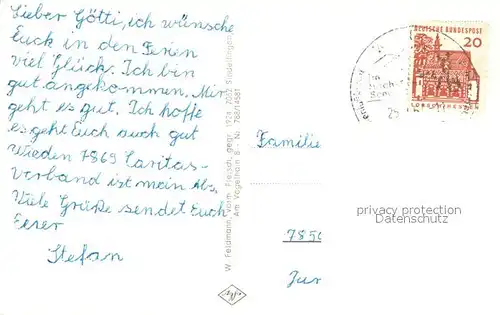 Lieber Götti, ich wünsche
Euck in den Ferien
viel Glück. Ich bin
gut angekommen. Mir
geht es gut. Ich hoffe
es geht Euch auch gut
Wieden 7869 Caritas-
verband ist mein Abs.
Viele Grüße sendet Euch
Eurer
Stefan
W. Feldmann, vorm. Fleisch, gegr. 1924, 7032 Sindelfingen
Am Vogelhain 8 - Nr.
DEUTSCHE BUNDESPOST
20
LORSCH/HESSEN
Familie
7850
privacy protection
Datenschutz